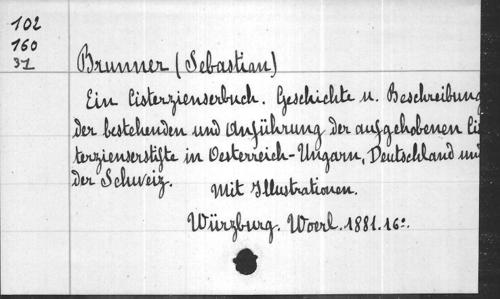 102
160
31
Brunner (Sebastian)
Ein Cisterzienserbuch. Geschichte u. Beschreibung
der bestehenden und Anführung der aufgehobenen Cis
terzienserstifte in Oesterreich-Ungarn, Deutschland und
der Schweiz.
Mit Illustrationen.
Würzburg. Woerl. 1881. 16º.